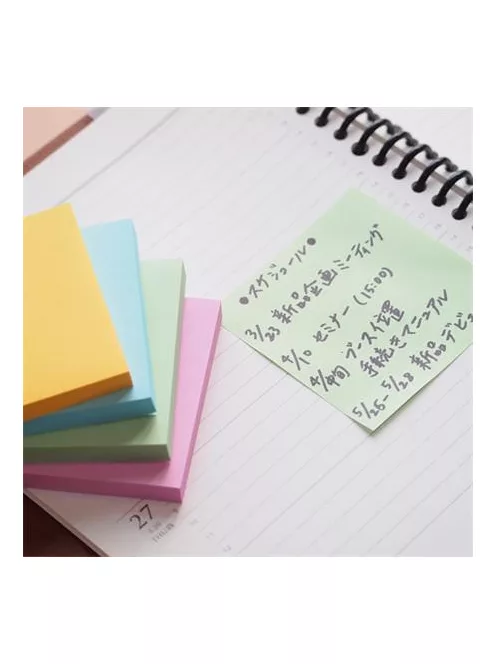 ●スケジュール●
3/23 新品企画ミーティング
4/10 セミナー (15:00)
4/中旬 ブース位置
手続きマニュアル
5/26-5/28 新品デビ
27